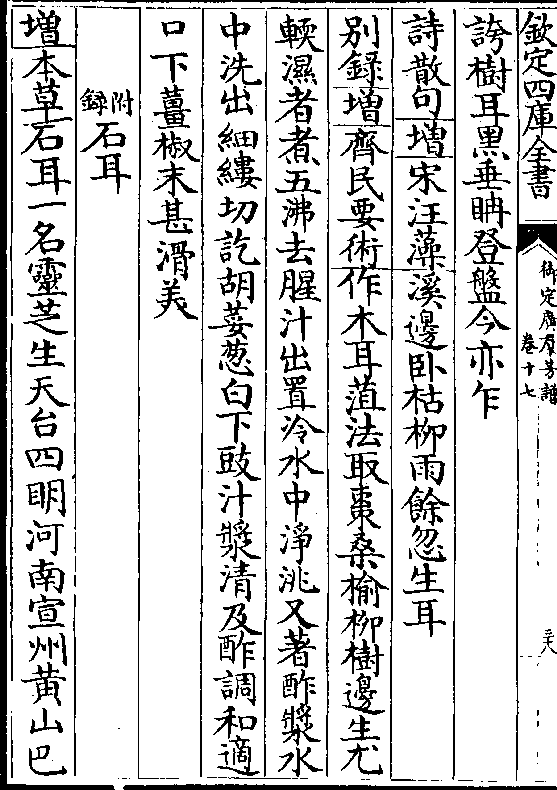 欽定四庫全書
御定廣羣芳譜
卷十七
三八
誇樹耳黑垂聃登盤今亦乍
詩散句增宋汪藻溪邊卧枯柳雨餘忽生耳
別錄增齊民要術作木耳菹法取棗桑榆柳樹邊生尤
輭濕者煮五沸去腥汁出置冷水中淨洮又著酢漿水
中洗出細縷切訖胡荽葱白下豉汁漿清及酢調和適
口下薑椒末甚滑美
附錄石耳
增本草石耳一名靈芝生天台四明河南宣州黃山巴